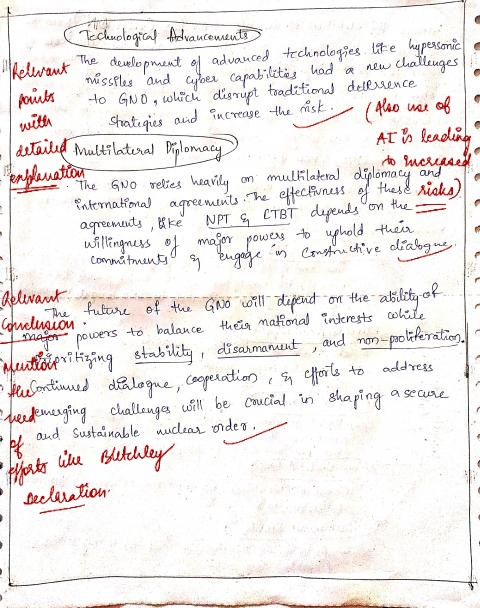 Technological Advancements
The development of advanced technologies like hypersonic
missiles and cyber capabilities had a new challenges
to GNO, which disrupt traditional deterrence
strategies and increase the risk.
Relevant
points
with
detailed
explanation
(Also use of
AI is leading
to increased
risks)
Multilateral Diplomacy
The GNO relies heavily on multilateral diplomacy and
international agreements. The effectiveness of these
agreements, like NPT & CTBT depends on the
willingness of major powers to uphold their
commitments & engage in constructive dialogue.
The future of the GNO will depend on the ability of
major powers to balance their national interests while
prioritizing stability, disarmament, and non-proliferation.
Continued dialogue, cooperation, & efforts to address
emerging challenges will be crucial in shaping a secure
and sustainable nuclear order.
Relevant
Conclusion
Mention
the
need
of
efforts like Bletchley
Declaration.